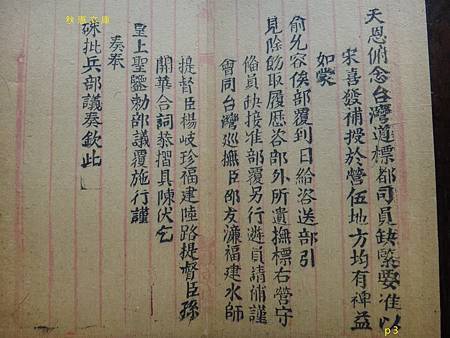 秋惠文庫
天恩俯念台灣道標都司員缺緊要准以
宋喜發補授於營伍地方均有裨益
如蒙
俞允容俟部覆到日給咨送部引
見除飭取履歷咨部外所遺撫標右營守
備員缺接准部覆另行遊員請補謹
會同台灣巡撫臣邵友濂福建水師
提督臣楊岐珍福建陸路提督臣孫
開華合詞恭摺具陳伏乞
皇上聖鑒勅部議覆施行謹
奏奉
硃批兵部議奏欽此
p3